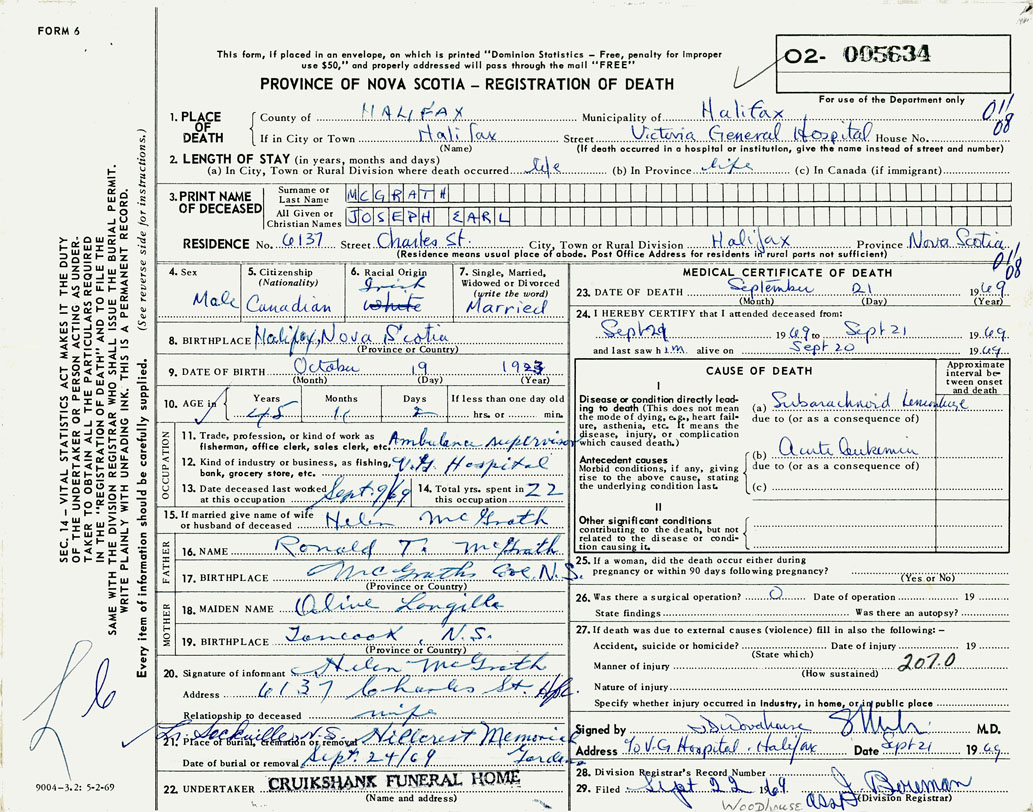 FORM 6
This form, if placed in an envelope, on which is printed "Dominion Statistics – Free, penalty for improper
use $50," and properly addressed will pass through the mail "FREE"
PROVINCE OF NOVA SCOTIA – REGISTRATION OF DEATH
02- 005634
For use of the Department only
011
08
1. PLACE OF DEATH
County of HALIFAX Municipality of Halifax
If in City or Town Halifax Street Victoria General Hospital House No.
(Name) (If death occurred in a hospital or institution, give the name instead of street and number)
2. LENGTH OF STAY (in years, months and days)
(a) In City, Town or Rural Division where death occurred life (b) In Province life (c) In Canada (if immigrant)
3. PRINT NAME OF DECEASED
Surname or Last Name MCGRATH
All Given or Christian Names JOSEPH EARL
RESIDENCE No. 6137 Street Charles St. City, Town or Rural Division Halifax Province Nova Scotia
(Residence means usual place of abode. Post Office Address for residents in rural parts not sufficient)
011
08
4. Sex Male
5. Citizenship (Nationality) Canadian
6. Racial Origin Irish White
7. Single, Married, Widowed or Divorced (write the word) Married
8. BIRTHPLACE Halifax, Nova Scotia
(Province or Country)
9. DATE OF BIRTH October 19 1923
(Month) (Day) (Year)
10. AGE in Years Months Days If less than one day old
45 11 2 hrs. or min.
OCCUPATION
11. Trade, profession, or kind of work as fisherman, office clerk, sales clerk, etc. Ambulance Supervisor
12. Kind of industry or business, as fishing, bank, grocery store, etc. V.G. Hospital
13. Date deceased last worked at this occupation Sept. 9/69
14. Total yrs. spent in this occupation 22
15. If married give name of wife or husband of deceased Helen McGrath
FATHER
16. NAME Ronald T. McGrath
17. BIRTHPLACE McGraths Cove N.S.
(Province or Country)
MOTHER
18. MAIDEN NAME Olive Langille
19. BIRTHPLACE Tancook, N.S.
(Province or Country)
20. Signature of informant Helen McGrath
Address 6137 Charles St. Hfx.
Relationship to deceased wife
Lr. Sackville N.S. Hillcrest Memorial
21. Place of burial, cremation or removal
Gardens
Date of burial or removal Sept. 24/69
22. UNDERTAKER CRUIKSHANK FUNERAL HOME
(Name and address)
MEDICAL CERTIFICATE OF DEATH
23. DATE OF DEATH September 21 1969
(Month) (Day) (Year)
24. I HEREBY CERTIFY that I attended deceased from:
1969 to Sept 21 1969
and last saw him alive on Sept 20 1969
CAUSE OF DEATH
Approximate interval between onset and death
I
Disease or condition directly leading to death (This does not mean the mode of dying, e.g., heart failure, asthenia, etc. It means the disease, injury, or complication which caused death.)
(a) Subarachnoid hemorrhage
due to (or as a consequence of)
Antecedent causes
Morbid conditions, if any, giving rise to the above cause, stating the underlying condition last.
(b) Acute leukemia
due to (or as a consequence of)
(c)
II
Other significant conditions
contributing to the death, but not related to the disease or condition causing it.
25. If a woman, did the death occur either during pregnancy or within 90 days following pregnancy?
(Yes or No)
26. Was there a surgical operation? O Date of operation 19
State findings Was there an autopsy?
27. If death was due to external causes (violence) fill in also the following: –
Accident, suicide or homicide? Date of injury 19
(State which)
Manner of injury 207.0
(How sustained)
Nature of injury
Specify whether injury occurred in Industry, in home, or in public place
Signed by Woodhouse M.D.
Address c/o V.G Hospital. Halifax Date Sept 21 1969
28. Division Registrar's Record Number
29. Filed Sept 22 1969
(Division Registrar)
WOODHOUSE
SEC. 14 – VITAL STATISTICS ACT MAKES IT THE DUTY
OF THE UNDERTAKER OR PERSON ACTING AS UNDER-
TAKER TO OBTAIN ALL THE PARTICULARS REQUIRED
IN THE "REGISTRATION OF DEATH" AND TO FILE THE
SAME WITH THE DIVISION REGISTRAR WHO SHALL ISSUE THE BURIAL PERMIT.
WRITE PLAINLY WITH UNFADING INK. THIS IS A PERMANENT RECORD.
Every item of information should be carefully supplied. (See reverse side for instructions.)
9004–3.2: 5-2-69